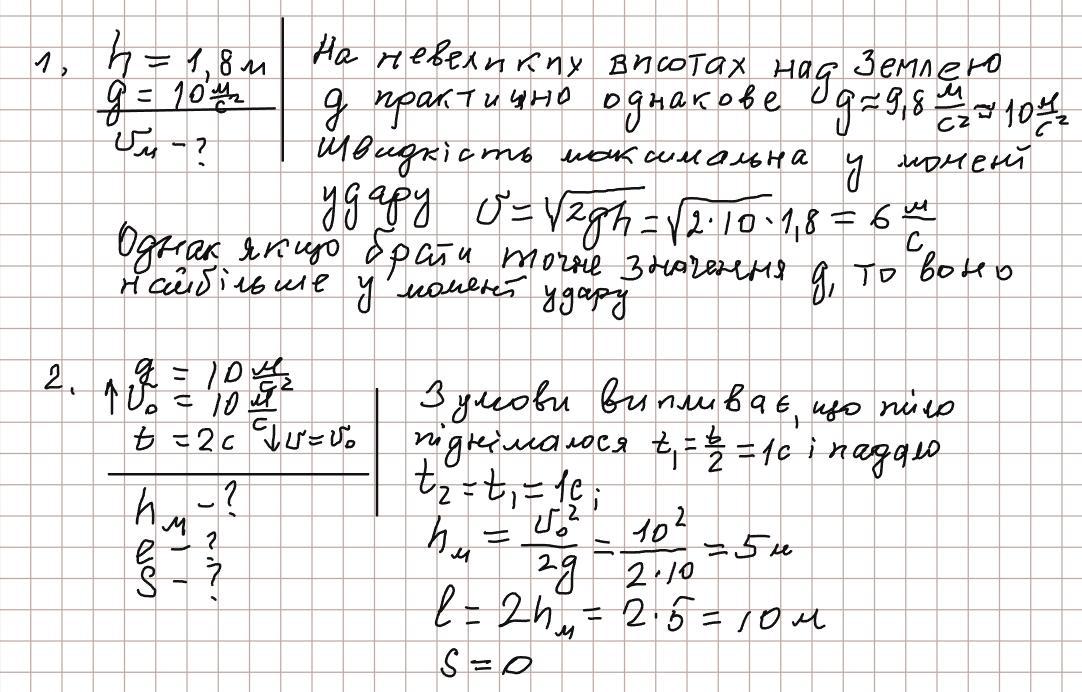 1, h = 1,8 м
g = 10 м/с²
υₘ - ?
На невеликих висотах над Землею
g практично однакове g ≈ 9,8 м/с² ≈ 10 м/с²
Швидкість максимальна у момент
удару υ = √2gh = √2·10·1,8 = 6 м/с
Однак якщо брати точне значення g, то воно
найбільше у момент удару
2. g = 10 м/с²
↑υ₀ = 10 м/с
t = 2с ↓υ=υ₀
hₘ - ?
l - ?
S - ?
З умови випливає, що тіло
піднімалося t₁ = t/2 = 1с і падало
t₂ = t₁ = 1с;
hₘ = υ₀²/2g = 10²/2·10 = 5 м
l = 2hₘ = 2·5 = 10 м
S = 0